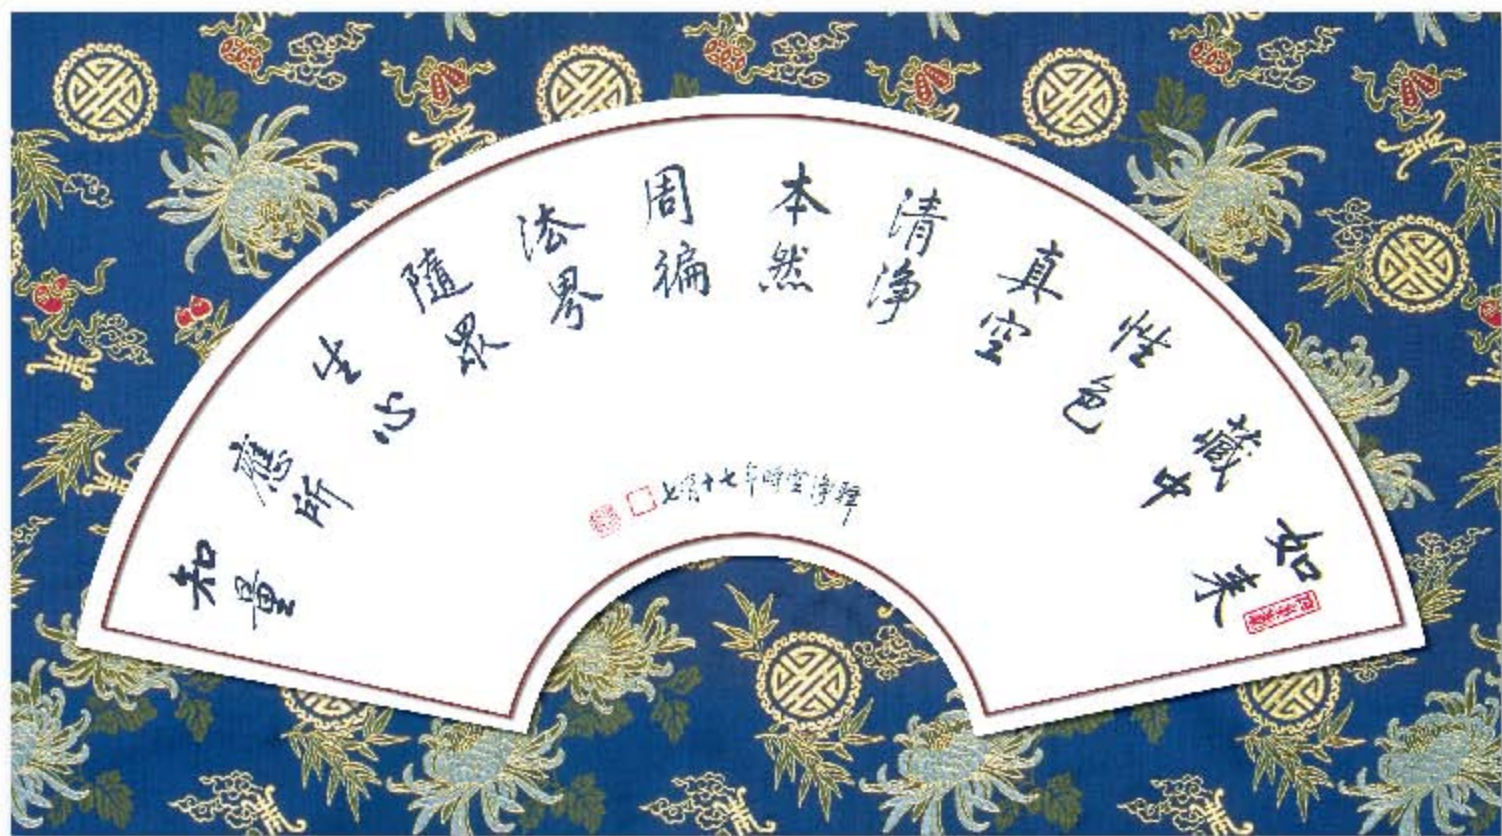 如來
藏中
性色
真空
清淨
本然
周徧
法界
隨眾
生心
應所
知量
釋淨空時年七十有七